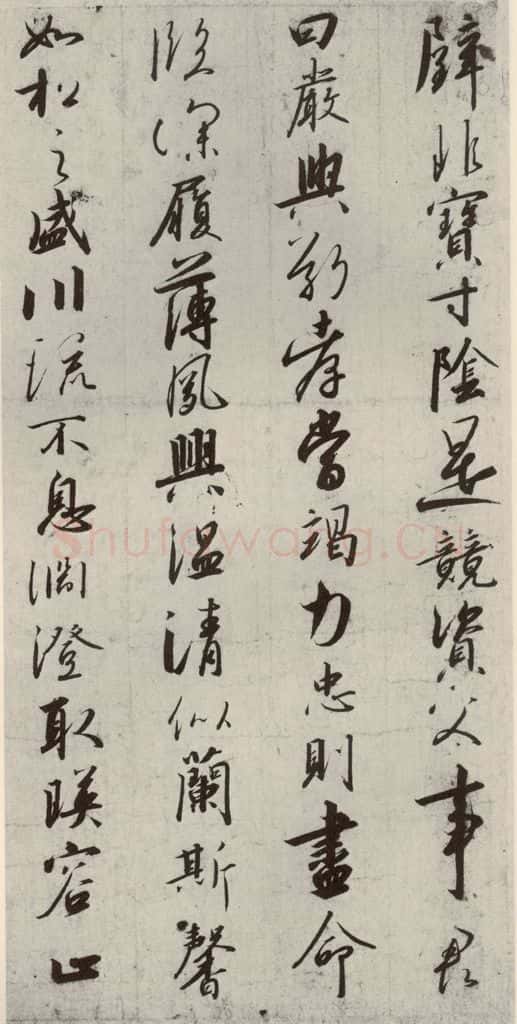 璧非寶寸陰是競資父事君
曰嚴與敬孝當竭力忠則盡命
臨深履薄夙興溫清似蘭斯馨
如松之盛川流不息淵澄取暎容止
Shufawang.cn